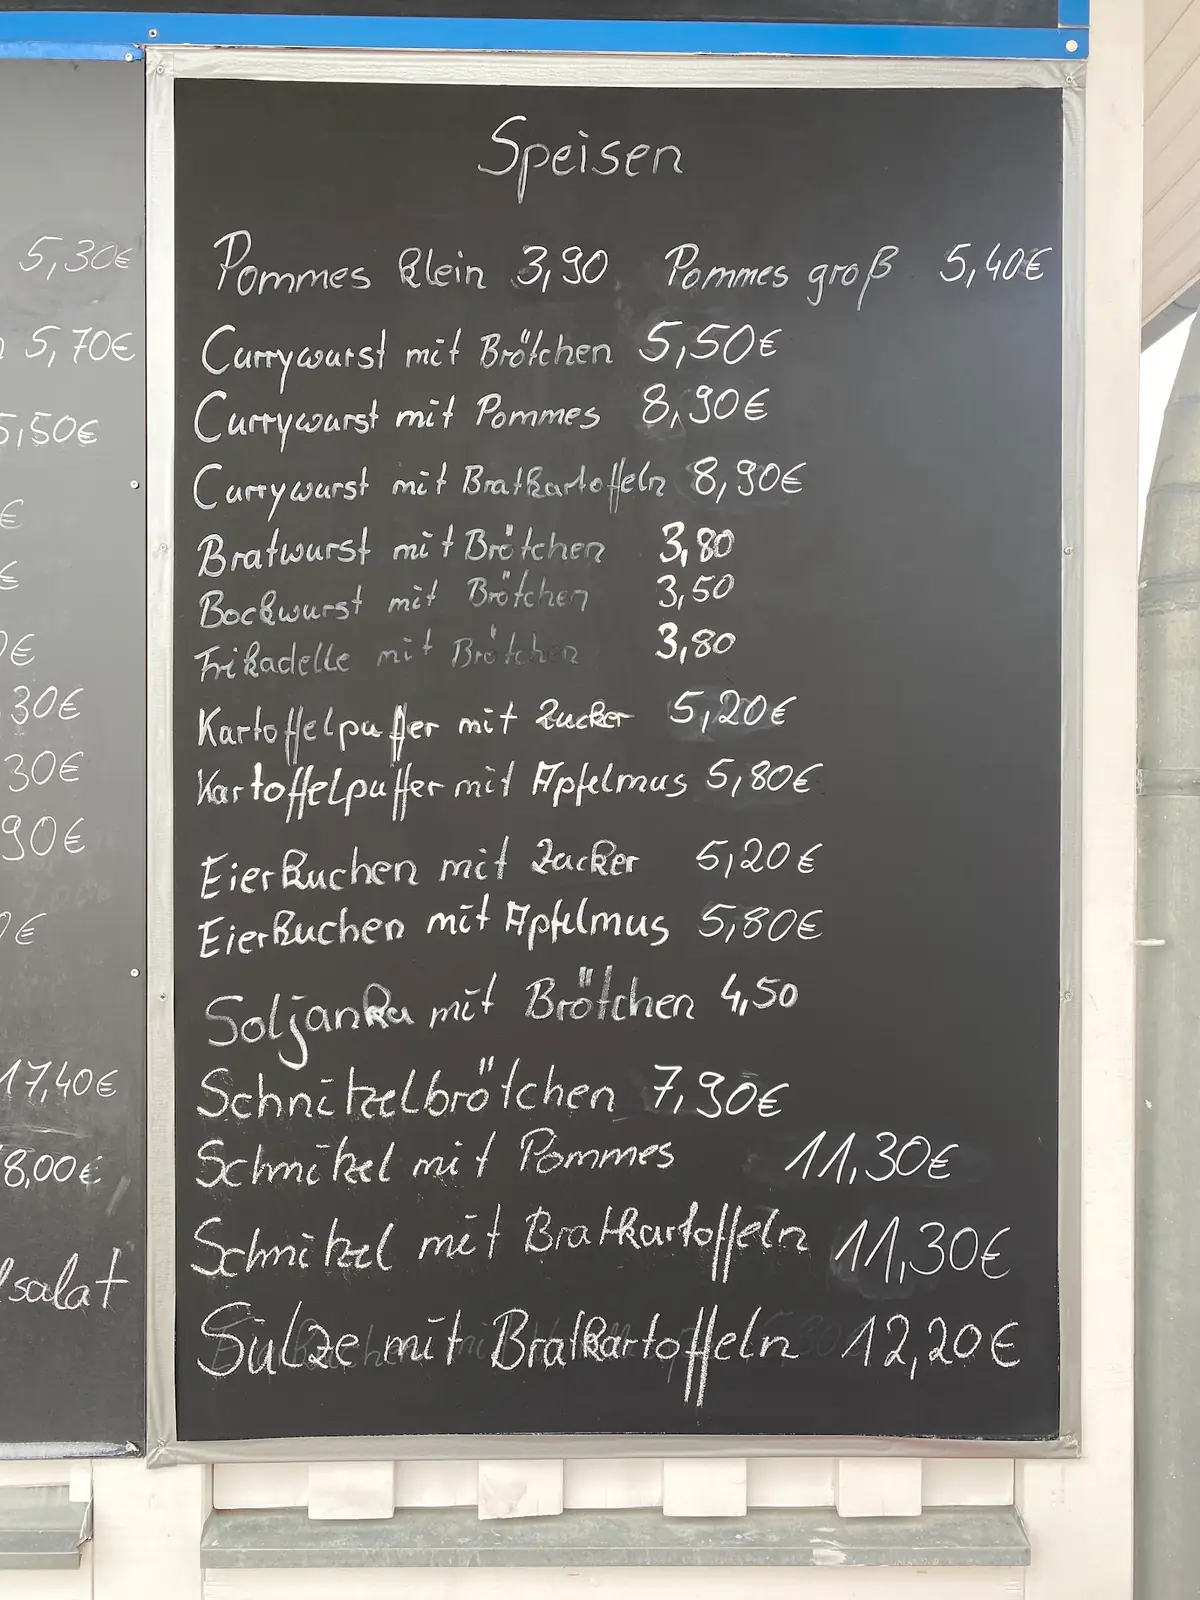 Speisen
Pommes klein 3,90 Pommes groß 5,40€
Currywurst mit Brötchen 5,50€
Currywurst mit Pommes 8,90€
Currywurst mit Bratkartoffeln 8,90€
Bratwurst mit Brötchen 3,80
Bockwurst mit Brötchen 3,50
Frikadelle mit Brötchen 3,80
Kartoffelpuffer mit Zucker 5,20€
Kartoffelpuffer mit Apfelmus 5,80€
Eierkuchen mit Zucker 5,20€
Eierkuchen mit Apfelmus 5,80€
Soljanka mit Brötchen 4,50
Schnitzelbrötchen 7,90€
Schnitzel mit Pommes 11,30€
Schnitzel mit Bratkartoffeln 11,30€
Sülze mit Bratkartoffeln 12,20€
5,30€
5,70€
5,50€
€
€
€
30€
30€
90€
€
17,40€
8,00€
salat